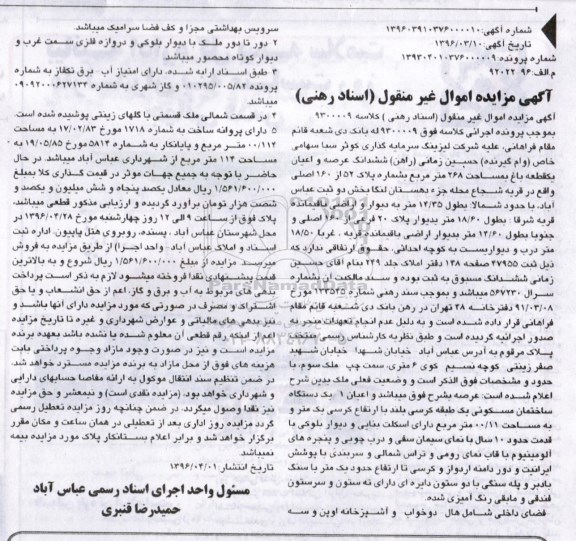 شماره آگهی: ۱۳۹۶۰۳۹۱۰۳۷۶۰۰۰۰۱۰
تاریخ آگهی: ۱۳۹۶/۰۳/۱۰
شماره پرونده: ۱۳۹۳۰۴۰۱۰۳۷۶۰۰۰۰۰۹
م الف: ۹۶ ۹۲۰۲۲
آگهی مزایده اموال غیر منقول (اسناد رهنی)
آگهی مزایده اموال غیر منقول (اسناد رهنی ) کلاسه ۹۳۰۰۰۰۹
بموجب پرونده اجرائی کلاسه فوق ۹۳۰۰۰۰۹ له بانک دی شعبه قائم
مقام فراهانی، علیه شرکت لیزینگ سرمایه گذاری کوثر سما سهامی
خاص (وام گیرنده) حسین زمانی (راهن) ششدانگ عرصه و اعیان
یکقطعه باغ بمساحت ۲۶۸ متر مربع بشماره پلاک ۵۲ از ۱۶۰ اصلی
واقع در قریه شجاع محله جزء دهستان لنگا بخش دو ثبت عباس
آباد، با حدود شمالا: بطول ۱۴/۳۵ متر به دیوار و اراضی باقیمانده
قریه شرقا : بطول ۱۸/۶۰ متر بدیوار پلاک ۲۰ فرعی از ۱۶۰ اصلی و
جنوبا بطول ۱۴/۶۰ متر بدیوار اراضی باقیمانده قریه . غربا ۱۸/۵۰
متر درب و دیواریست به کوچه احداثی. حقوق ارتفاقی ندارد که
ذیل ثبت ۲۷۹۵۵ صفحه ۱۲۸ دفتر املاک جلد ۲۴۹ بنام آقای حسین
زمانی ششدانگ مسبوق به ثبوت بوده و سند مالکیت آن بشماره
سریال ۵۶۷۲۳۰ میباشد و بموجب سند رهنی شماره ۱۳۵۲۵ مورخ
۹۱/۰۳/۰۸ دفترخانه ۳۸ تهران در رهن بانک دی شعبه قائم مقام
فراهانی قرار داده شده است و به دلیل عدم انجام تعهدات منجر به
صدور اجرائیه گردیده است و طبق نظریه کارشناس رسمی منتخب
پلاک مرقوم به آدرس عباس آباد خیابان شهدا خیابان شهید
صفر زینتی کوچه نسیم کوی ۶ متری، سمت چپ ملک سوم، با
حدود و مشخصات فوق الذکر است و وضعیت فعلی ملک بدین شرح
اعلام شده است: عرصه بشرح فوق میباشد و اعیان ۱ـ یک دستگاه
ساختمان مسکونی یک طبقه کرسی بلند با ارتفاع کرسی یک متر و
به مساحت ۰۰/۱۱ متر مربع دارای اسکلت بنایی و دیوار بلوکی با
قدمت حدود ۱۰ سال با نمای سیمان سفی و درب چوبی و پنجره های
آلومینیوم با قاب نمای رومی و تراس شمالی و سربندی با پوشش
ایرانیت و دور دامنه اردواز و کرسی تا ارتفاع حدود یک متر با سنگ
بادبر و پله سنگی با دو ستون دایره ای دارای ته ستون و سرستون
فندقی و مابقی رنگ آمیزی شده.
فضای داخلی شامل هال دوخواب و آشپزخانه اوپن و سه
سرویس بهداشتی مجزا و کف فضا سرامیک میباشد.
۲ دور تا دور ملک با دیوار بلوکی و دروازه فلزی سمت غرب و
دیوار کوتاه محصور میباشد.
۳ طبق اسناد ارایه شده، دارای امتیاز آب - برق تکفاز به شماره
پرونده ۰۱۰۲۹۵/۰۰۵/۸۲ و گاز شهری به شماره ۰۹۰۹۲۰۰۰۶۲۷۱۳۳
میباشد.
۴ در قسمت شمالی ملک قسمتی با گلهای زینتی پوشیده شده است.
۵ دارای پروانه ساخت به شماره ۱۷۱۸ مورخ ۱۷/۰۲/۸۳ به مساحت
۰۰/۱۱۲ متر مربع و پایانکار به شماره ۵۸۱۴ مورخ ۱۹/۰۵/۸۵ به
مساحت ۱۱۴ متر مربع از شهرداری عباس آباد میباشد. در حال
حاضر با توجه به جمیع جهات موثر در قیمت گذاری کلا بمبلغ
۱/۵۶۱/۶۰۰/۰۰۰ ریال معادل یکصد پنجاه و شش میلیون و یکصد و
شصت هزار تومان برآورد گردیده و ارزیابی مذکور قطعی میباشد،
پلاک فوق از ساعت ۹ الی ۱۲ روز چهارشنبه مورخ ۱۳۹۶/۰۴/۲۸ در
محل شهرستان عباس آباد . پسنده، روبروی هتل پاپیون، اداره ثبت
اسناد و املاک عباس آباد . واحد اجـرا) از طریق مزایده به فروش
میرسد. مزایده از مبلغ ۱/۵۶۱/۶۰۰/۰۰۰ ریال شروع و به بالاترین
قیمت پیشنهادی نقدا فروخته میشود لازم به ذکر است پرداخت
بدهی های مربوط به آب و برق و گاز، اعم از حق انشعاب و یا حق
اشتراک و مصرف در صورتی که مورد مزایده دارای آنها باشد و
نیز بدهی های مالیاتی و عوارض شهرداری و غیره تا تاریخ مزایده
اعم از اینکه رقم قطعی آن معلوم شده یا نشده باشد بعهده برنده
مزایده است و نیز در صورت وجود مازاد وجوه پرداختی بابت
هزینه های فوق از محل مازاد به برنده مزایده مسترد خواهد شد،
در ضمن تنظیم سند انتقال موکول به ارائه مفاصا حسابهای دارایی
و شهرداری خواهد بود. (مزایده نقدی است) و نیمعشر و حق مزایده
نیز نقدا وصول میگردد. در ضمن چنانچه روز مزایده تعطیل رسمی
گردد مزایده روز اداری بعد از تعطیلی در همان ساعت و مکان مقرر
برگزار خواهد شد و برابر اعلام بستانکار پلاک مورد مزایده بیمه
نمیباشد.
تاریخ انتشار: ۱۳۹۶/۰۴/۰۱
مسئول واحد اجرای اسناد رسمی عباس آباد
حمیدرضا قنبری